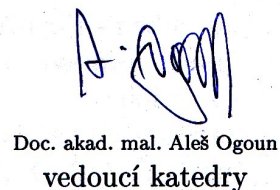 Doc. akad. mal. Aleš Ogoun
vedoucí katedry